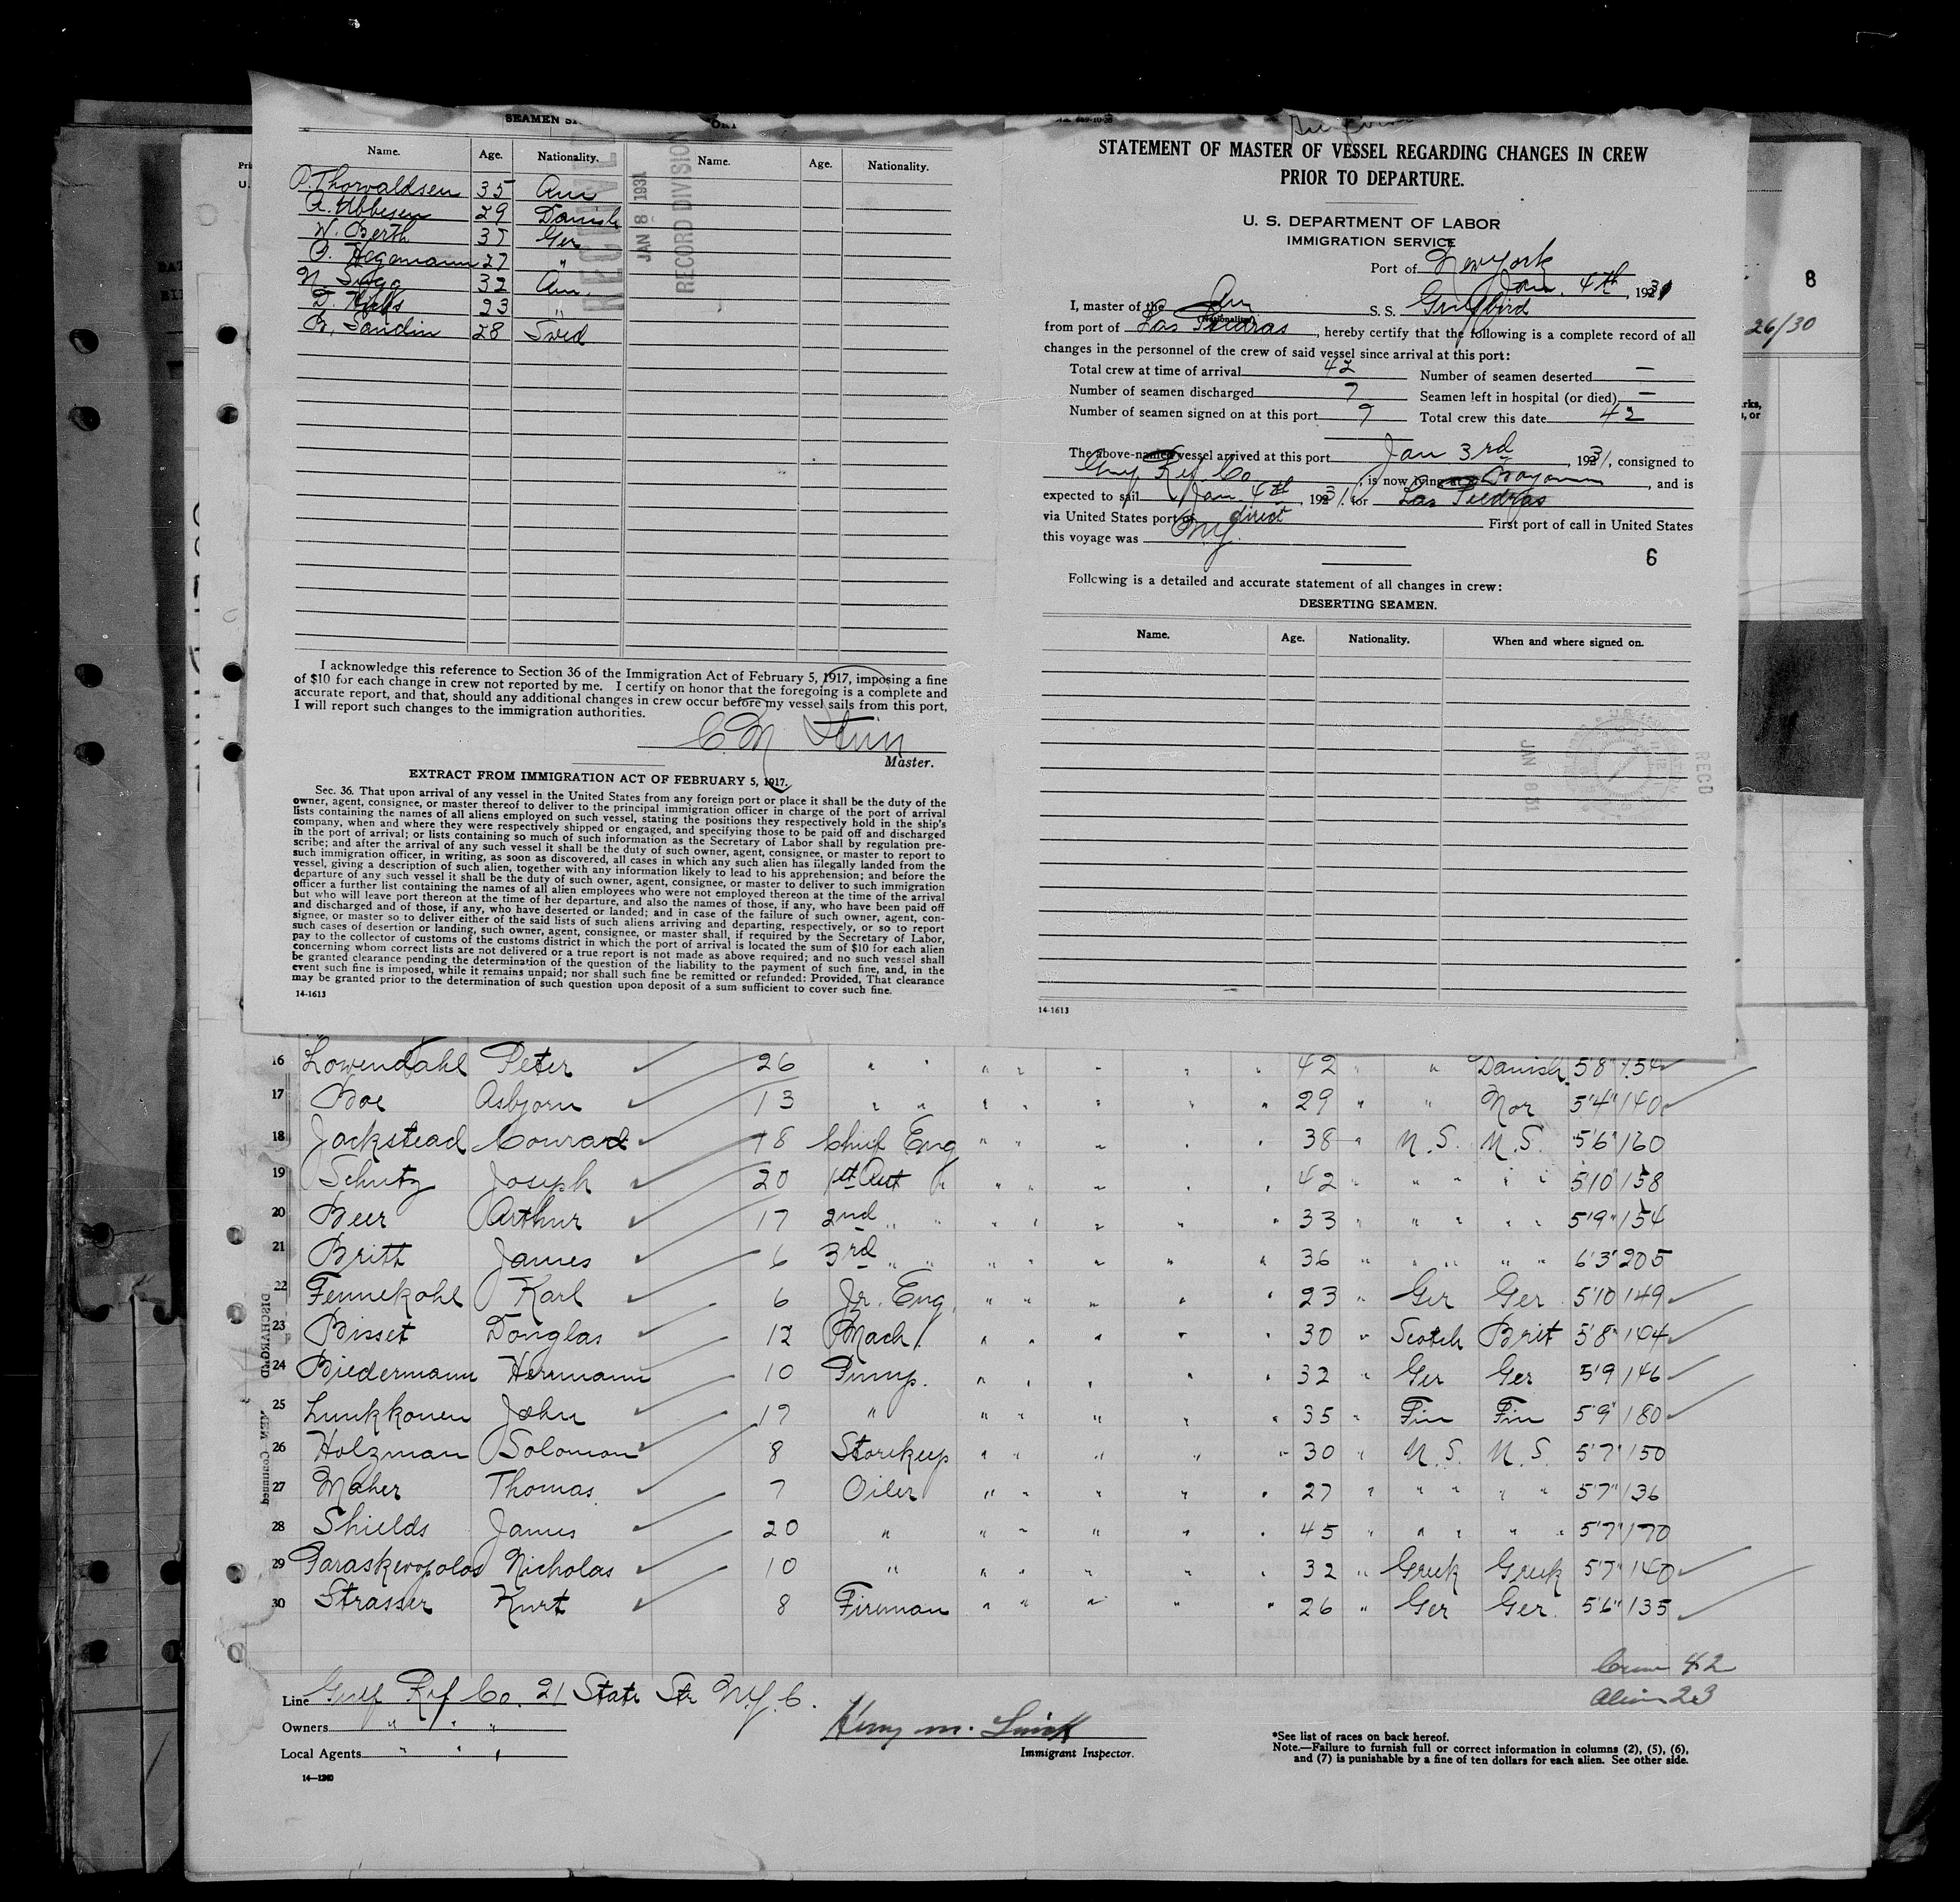 SEAMEN
Name. Age. Nationality. Name. Age. Nationality.
P. Thorwaldsen 35 Am
A. Ebbesen 29 Danish
W. Berth 37 Ger
Hegemann 27 "
N. Swigg 32 Am.
D. Hicks 23 "
B. Sandin 28 Swed
RECEIVED
JAN 8 1931
RECORD DIVISION
I acknowledge this reference to Section 36 of the Immigration Act of February 5, 1917, imposing a fine
of $10 for each change in crew not reported by me. I certify on honor that the foregoing is a complete and
accurate report, and that, should any additional changes in crew occur before my vessel sails from this port,
I will report such changes to the immigration authorities.
C. M.
Master.
EXTRACT FROM IMMIGRATION ACT OF FEBRUARY 5, 1917.
Sec. 36. That upon arrival of any vessel in the United States from any foreign port or place it shall be the duty of the
owner, agent, consignee, or master thereof to deliver to the principal immigration officer in charge of the port of arrival
lists containing the names of all aliens employed on such vessel, stating the positions they respectively hold in the ship's
company, when and where they were respectively shipped or engaged, and specifying those to be paid off and discharged
in the port of arrival; or lists containing so much of such information as the Secretary of Labor shall by regulation pre-
scribe; and after the arrival of any such vessel it shall be the duty of such owner, agent, consignee, or master to report to
such immigration officer, in writing, as soon as discovered, all cases in which any such alien has illegally landed from the
vessel, giving a description of such alien, together with any information likely to lead to his apprehension; and before the
departure of any such vessel it shall be the duty of such owner, agent, consignee, or master to deliver to such immigration
officer a further list containing the names of all alien employees who were not employed thereon at the time of the arrival
but who will leave port thereon at the time of her departure, and also the names of those, if any, who have been paid off
and discharged and of those, if any, who have deserted or landed; and in case of the failure of such owner, agent, con-
signee, or master so to deliver either of the said lists of such aliens arriving and departing, respectively, or so to report
such cases of desertion or landing, such owner, agent, consignee, or master shall, if required by the Secretary of Labor,
pay to the collector of customs of the customs district in which the port of arrival is located the sum of $10 for each alien
concerning whom correct lists are not delivered or a true report is not made as above required; and no such vessel shall
be granted clearance pending the determination of the question of the liability to the payment of such fine, and, in the
event such fine is imposed, while it remains unpaid; nor shall such fine be remitted or refunded: Provided, That clearance
may be granted prior to the determination of such question upon deposit of a sum sufficient to cover such fine.
14-1613
STATEMENT OF MASTER OF VESSEL REGARDING CHANGES IN CREW
PRIOR TO DEPARTURE.
U. S. DEPARTMENT OF LABOR
IMMIGRATION SERVICE
Port of New York
Jan. 4th, 1931
I, master of the Am S. S. Gulfbird
(Nationality)
from port of Las Piedras, hereby certify that the following is a complete record of all
changes in the personnel of the crew of said vessel since arrival at this port:
Total crew at time of arrival 42 Number of seamen deserted —
Number of seamen discharged 7 Seamen left in hospital (or died) —
Number of seamen signed on at this port 7 Total crew this date 42
The above-named vessel arrived at this port Jan 3rd, 1931, consigned to
Ref Co, is now lying at Bayonne, and is
expected to sail Jan 4th, 1931 for Las Piedras
via United States port of direct First port of call in United States
this voyage was N.Y.
6
Following is a detailed and accurate statement of all changes in crew:
DESERTING SEAMEN.
Name. Age. Nationality. When and where signed on.
JAN 8 31
RECD
14-1613
8
26/30
16 Lowendahl Peter 26 " " " " " " " 42 " " Danish 5'8" 154
17 Boe Asbjorn 13 " " " " " " " 29 " " Nor 5'4" 140
18 Jackstead Conrad 18 Chief Eng " " " " " 38 " U.S. U.S. 5'6" 160
19 Schutz Joseph 20 1st Asst " " " " " " 42 " " " " " 5'10 158
20 Beer Arthur 17 2nd " " " " " " " 33 " " " " " 5'9" 154
21 Britt James 6 3rd " " " " " " " 36 " " " " " 6'3" 205
22 Fennekohl Karl 6 Jr. Eng. " " " " " 23 " Ger Ger 5'10 149
23 Bisset Douglas 12 Mach. " " " " " 30 " Scotch Brit 5'8" 164
24 Biedermann Hermann 10 Pump. " " " " " 32 " Ger Ger 5'9 146
25 Lunkkonen John 17 " " " " " " 35 " Fin Fin 5'9" 180
26 Holzman Solomon 8 Storekeep " " " " " 30 " U.S. U.S. 5'7" 150
27 Maher Thomas 7 Oiler " " " " " 27 " " " " " 5'7" 136
28 Shields James 20 " " " " " " 45 " " " " " 5'7" 170
29 Paraskevopolos Nicholas 10 " " " " " " 32 " Greek Greek 5'7" 140
30 Strasser Kurt 8 Fireman " " " " " 26 " Ger Ger. 5'6" 135
Crew 42
Alien 23
Line Gulf Ref Co. 21 State Str N.Y.C.
Owners " " "
Local Agents " " "
Immigrant Inspector.
*See list of races on back hereof.
Note.—Failure to furnish full or correct information in columns (2), (5), (6),
and (7) is punishable by a fine of ten dollars for each alien. See other side.
14—1240